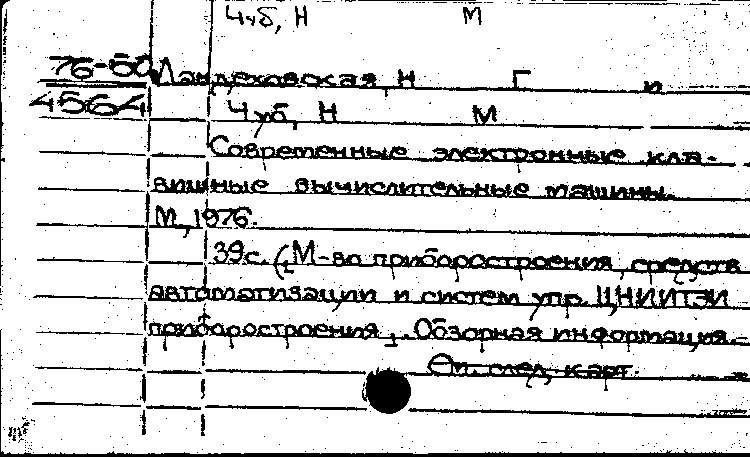 Чуб, Н М
76-50 Ландеховская, Н Г и
4564 Чуб, Н М
Современные электронные кла-
вишные вычислительные машины.
М., 1976.
39с. (М-во приборостроения, средств
автоматизации и систем упр. ЦНИИТЭИ
приборостроения, . Обзорная информация.
См. след. карт.